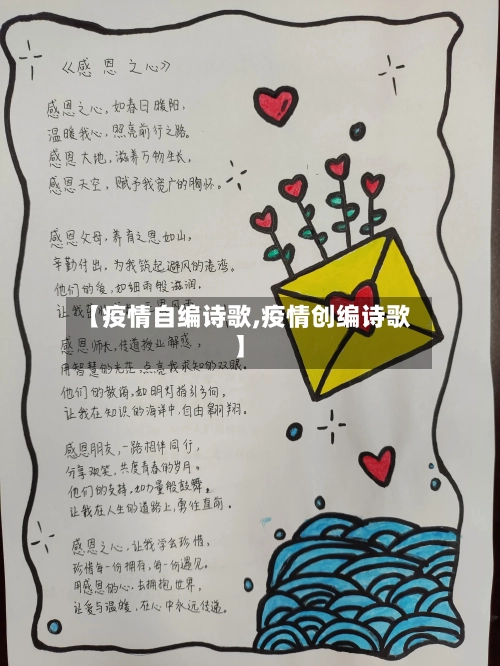 《感恩之心》
感恩之心，如春日暖阳，
温暖我心，照亮前行之路。
感恩大地，滋养万物生长，
感恩天空，赋予我宽广的胸怀。
感恩父母，养育之恩如山，
辛勤付出，为我筑起避风的港湾。
他们的爱，如细雨般滋润，
让我
【疫情自编诗歌,疫情创编诗歌
】
感恩师长，传道授业解惑，
用智慧的光芒，点亮我求知的双眼。
他们的教诲，如明灯指引方向，
让我在知识的海洋中，自由翱翔。
感恩朋友，一路相伴同行，
分享欢笑，共度青春的岁月。
他们的支持，如力量般鼓舞，
让我在人生的道路上，勇往直前。
感恩之心，让我学会珍惜，
珍惜每一份拥有，每一份遇见。
用感恩的心，去拥抱世界，
让爱与温暖，在心中永远传递。